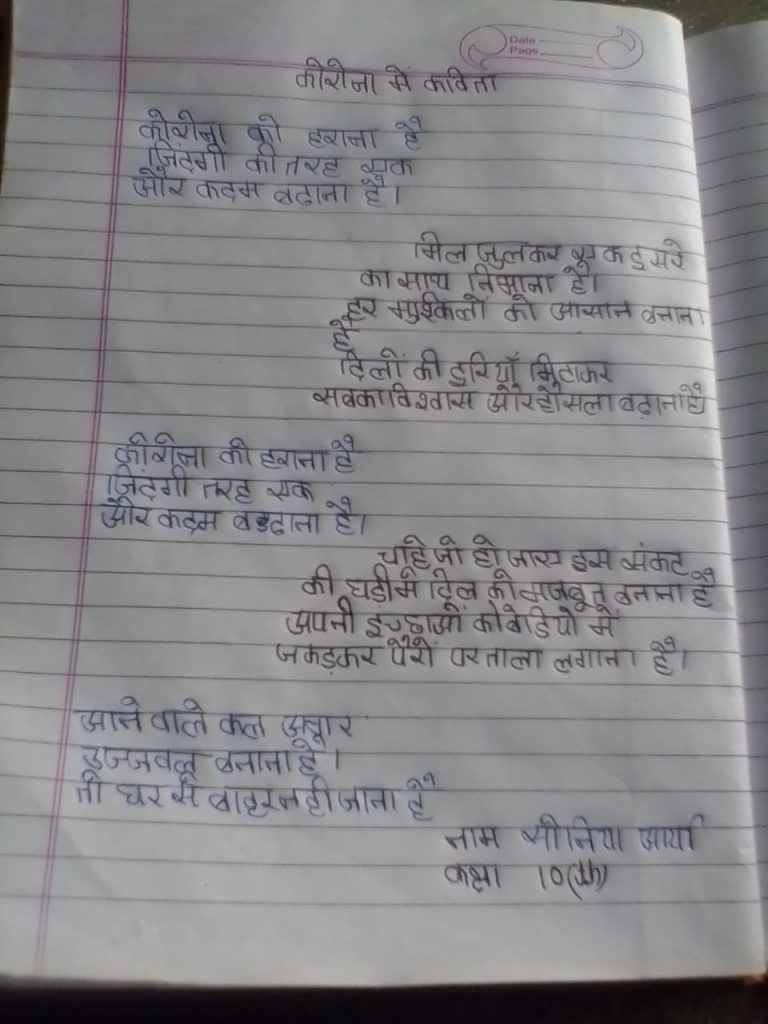 Date
Page
कोरोना में कविता
कोरोना को हराना है
ज़िंदगी की तरह एक
और कदम बढ़ाना है।
मिल जुलकर एक दुसरे
का साथ निभाना है।
हर मुश्किलों को आसान बनाना
है
दिलों की दुरियाँ मिटाकर
सबका विश्वास और होसला बढ़ाना है
कोरोना को हराना है
ज़िंदगी तरह एक
और कदम बढाना है।
चाहे जो हो जाए इस संकट
की घड़ी में दिल को मजबूत बनाना है
अपनी इच्छाओं को बेडियो में
जकड़कर पैरों पर ताला लगाना है।
आने वाले कल अगर
उज्जवल बनाना है।
तो घर से बाहर नही जाना है
नाम सोनिया आर्या
कक्षा 10(th)